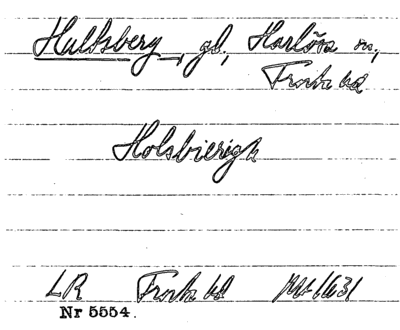 Hultsberg, gd., Harlösa sn.,
Frosta hd
Holsbierigh
LR Frosta hd 1631
Nr 5554.